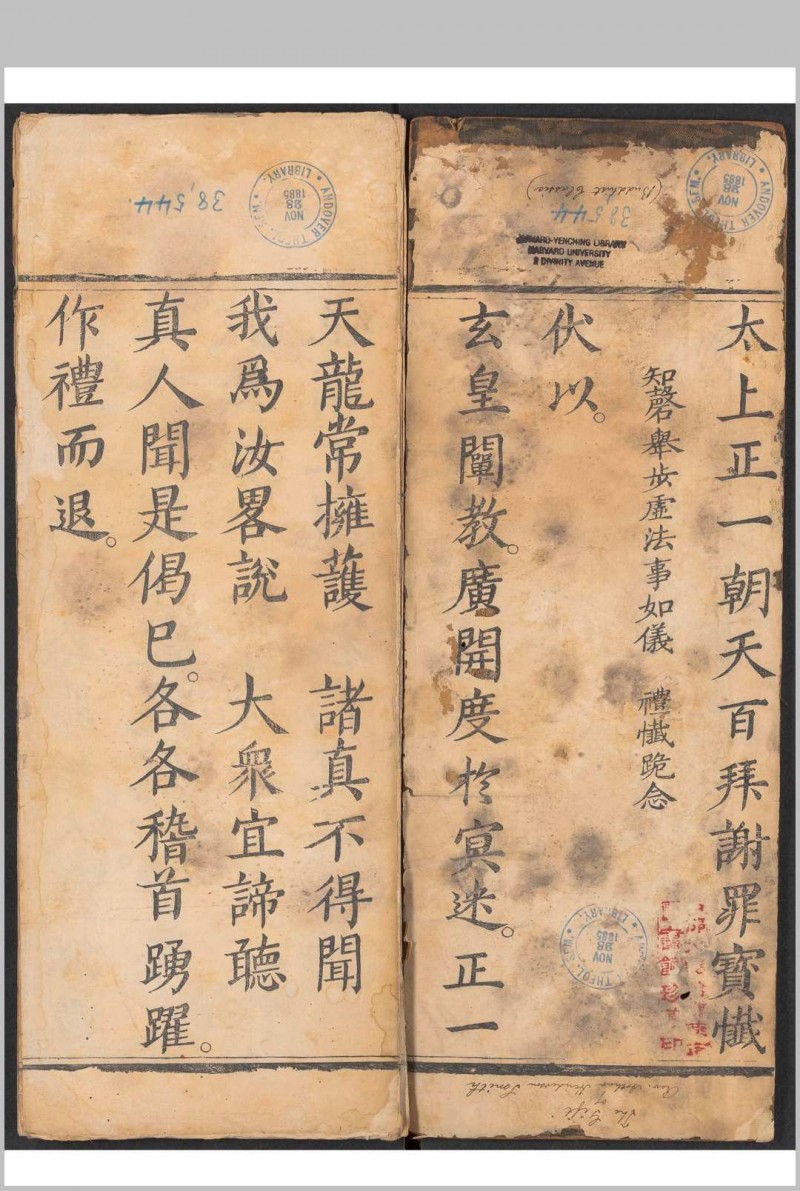 太上正一朝天百拜謝罪寶懺
知磬舉步虛法事如儀　禮懺跪念
伏以。
玄皇闡教。廣開度於冥迷。正一
天龍常擁護　諸真不得聞
我爲汝畧說　大衆宜諦聽
真人聞是偈已。各各稽首踴躍。
作禮而退。
(Buddhist Classic)
38,544
ANDOVER THEOL. SEM. LIBRARY.
NOV
28
1885
HARVARD-YENCHING LIBRARY
HARVARD UNIVERSITY
2 DIVINITY AVENUE
ANDOVER THEOL. SEM. LIBRARY.
NOV
28
1885
The Gift
of
Rev. Arthur Henderson Smith
38,544
ANDOVER THEOL. SEM. LIBRARY.
NOV
28
1885